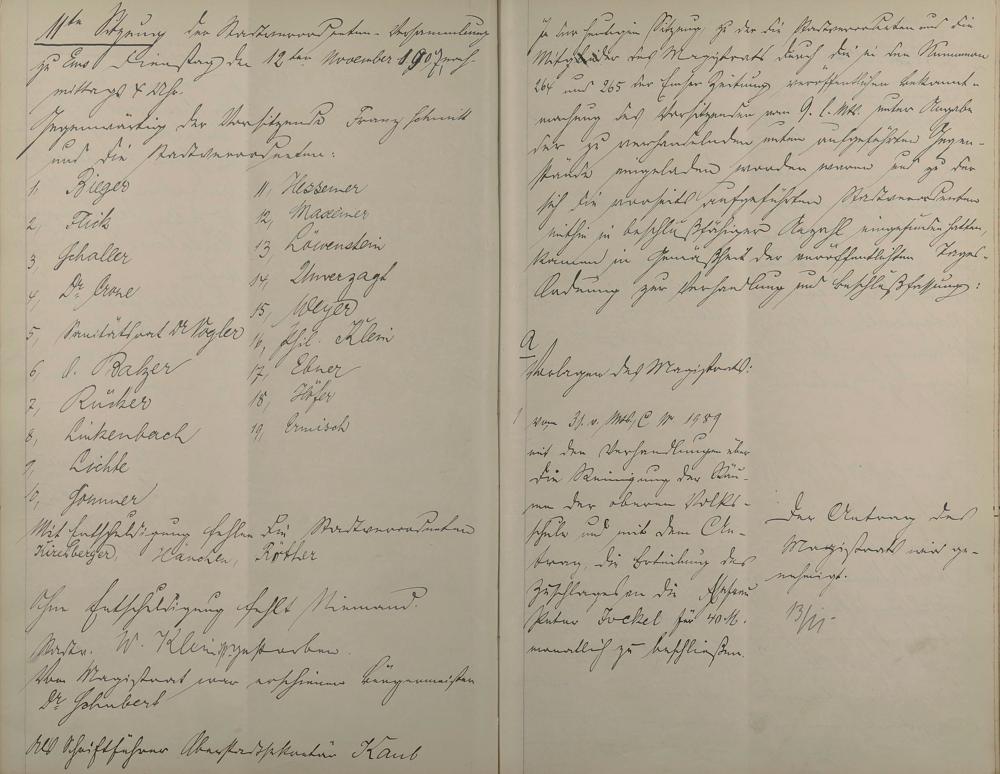 11te Sitzung der Stadtverordneten-Versammlung
zu Ems Dienstag den 12ten November 1907, nach-
mittags 4 Uhr.
Gegenwärtig der Vorsitzende Franz Schmitt
und die Stadtverordneten:
1, Bieger
2, Flick
3, Schaller
4, Dr. Crone
5, Sanitätsrat Dr Vogler
6, A. Balzer
7, Rücker
8, Linkenbach
9, Lichte
10, Sommer
11, Hessemer
12, Maxeiner
13, Löwenstein
14, Unverzagt
15, Weyer
16, Phil. Klein
17, Ebner
18, Höfer
19, Ermisch
Mit Entschuldigung fehlen die Stadtverordneten
Kirchberger, Hanchen, Köther
Ohne Entschuldigung fehlt Niemand.
Stadtv. W. Klein gestorben.
Vom Magistrat war erschienen Bürgermeister
Dr. Schubert
Als Schriftführer Oberstadtsekretär Kaul
In der heutigen Sitzung, zu der die Stadtverordneten und die
Mitglieder des Magistrats durch die in den Nummern
264 und 265 der Emser Zeitung veröffentlichten Bekannt-
machung des Vorsitzenden vom 9. l. Mts. unter Angabe
der zu verhandelnden unten aufgeführten Gegen-
stände eingeladen worden waren und zu der
sich die vorseits aufgeführten Stadtverordneten
mithin in beschlußfähiger Anzahl eingefunden hatten,
kamen in Gemäßheit der veröffentlichten Tages-
Ordnung zur Verhandlung und Beschlußfassung:
A
Vorlagen des Magistrats:
1 vom 31. v. Mts, C No 1989
mit den Verhandlungen über
die Reinigung der Räu-
me der oberen Volks-
schule und mit dem An-
trag, die Erteilung des
Zuschlages an die Ehefrau
Peter Jockel für 40 M.
monatlich zu beschließen.
Der Antrag des
Magistrats wird ge-
nehmigt.
13/11